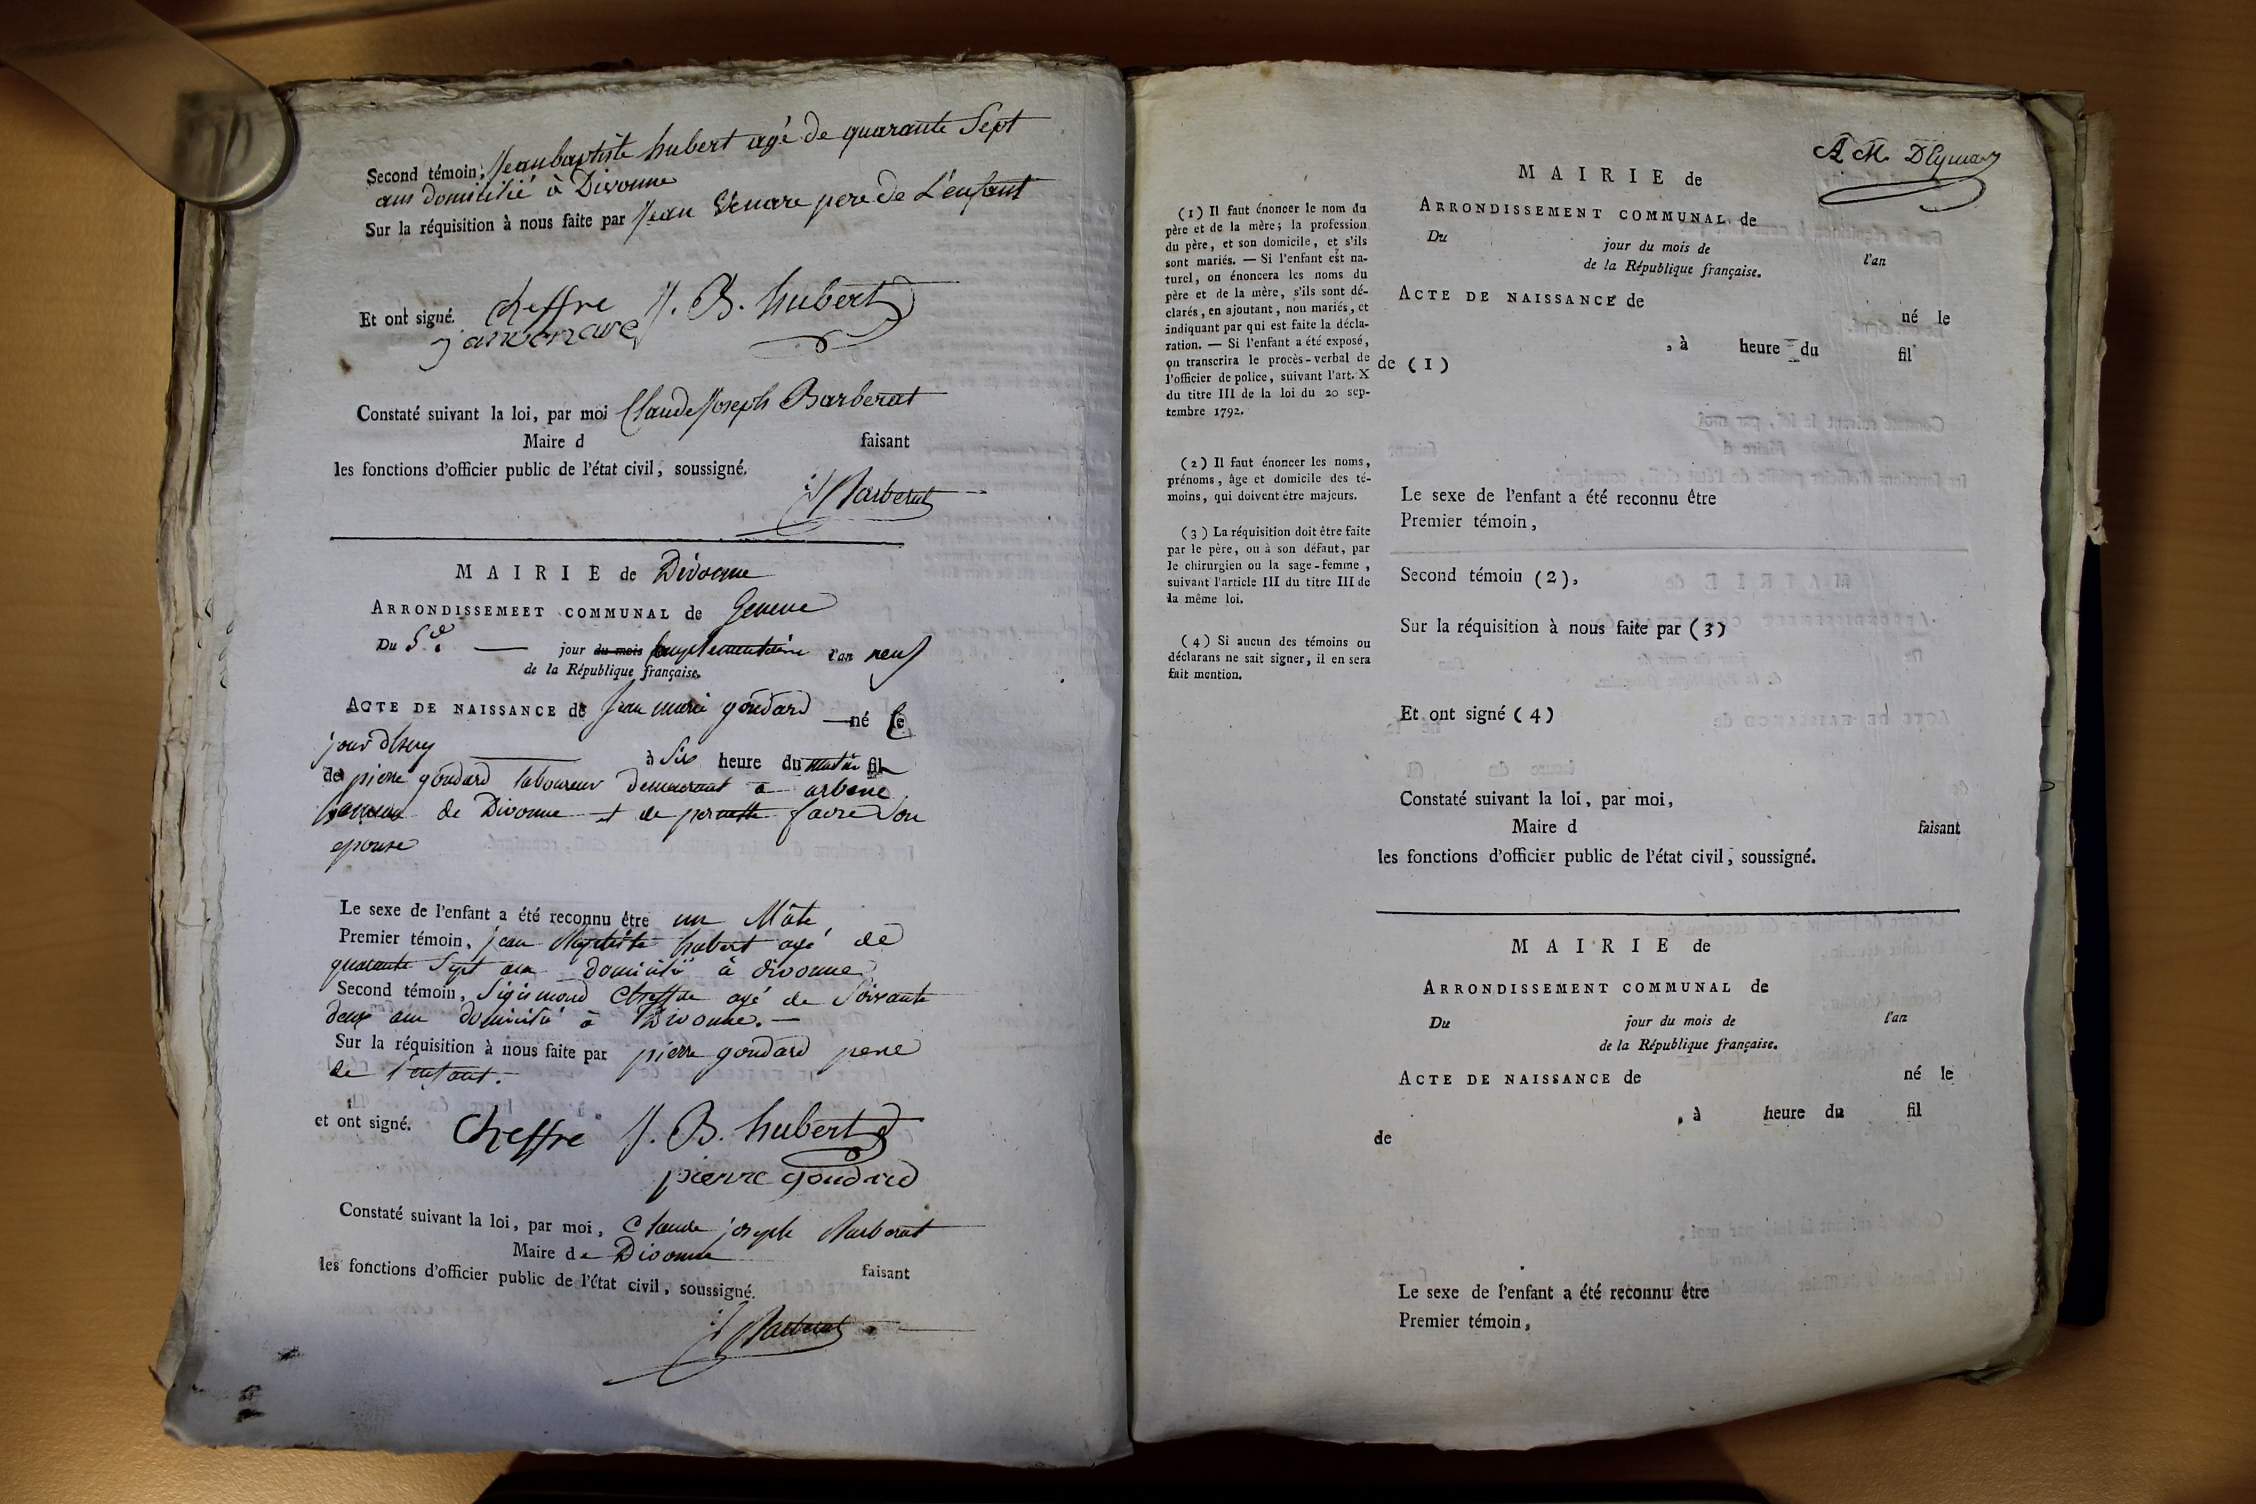 Second témoin, Jeanbaptiste hubert agé de quarante Sept
ans domicilié à Divonne
Sur la réquisition à nous faite par Jean Venare pere de L'enfant
Et ont signé. Cheffre J. B. hubert
janvenare
Constaté suivant la loi, par moi Claude Joseph Barberat
Maire d faisant
les fonctions d'officier public de l'état civil, soussigné.
Barberat
MAIRIE de Divonne
ARRONDISSEMEET COMMUNAL de Geneve
Du 5.e jour du mois Complementaire l'an neuf
de la République française.
ACTE DE NAISSANCE de Jean marie goudard né le
jour d'hery à Six heure du matin fil
de pierre goudard laboureur demeurant a arbene
hameau de Divonne et de pernette favre Son
epouse
Le sexe de l'enfant a été reconnu être un Mâle
Premier témoin, jean Baptiste hubert agé de
quarante Sept ans domicilié à divonne
Second témoin, Sigismond Cheffre agé de Soixante
deux ans domicilié à Divonne.
Sur la réquisition à nous faite par pierre goudard pere
de l'enfant.
et ont signé. Cheffre J. B. hubert
pierre goudard
Constaté suivant la loi, par moi, Claude joseph Barberat
Maire de Divonne faisant
les fonctions d'officier public de l'état civil, soussigné.
Barberat
A. M.
MAIRIE de
ARRONDISSEMENT COMMUNAL de
Du jour du mois de l'an
de la République française.
ACTE DE NAISSANCE de né le
, à heure du fil
de (1)
(1) Il faut énoncer le nom du
père et de la mère; la profession
du père, et son domicile, et s'ils
sont mariés. — Si l'enfant est na-
turel, on énoncera les noms du
père et de la mère, s'ils sont dé-
clarés, en ajoutant, non mariés, et
indiquant par qui est faite la décla-
ration. — Si l'enfant a été exposé,
on transcrira le procès-verbal de
l'officier de police, suivant l'art. X
du titre III de la loi du 20 sep-
tembre 1792.
(2) Il faut énoncer les noms,
prénoms, âge et domicile des té-
moins, qui doivent être majeurs.
(3) La réquisition doit être faite
par le père, ou à son défaut, par
le chirurgien ou la sage-femme,
suivant l'article III du titre III de
la même loi.
(4) Si aucun des témoins ou
déclarans ne sait signer, il en sera
fait mention.
Le sexe de l'enfant a été reconnu être
Premier témoin,
Second témoin (2),
Sur la réquisition à nous faite par (3)
Et ont signé (4)
Constaté suivant la loi, par moi,
Maire d faisant
les fonctions d'officier public de l'état civil, soussigné.
MAIRIE de
ARRONDISSEMENT COMMUNAL de
Du jour du mois de l'an
de la République française.
ACTE DE NAISSANCE de né le
, à heure du fil
de
Le sexe de l'enfant a été reconnu être
Premier témoin,